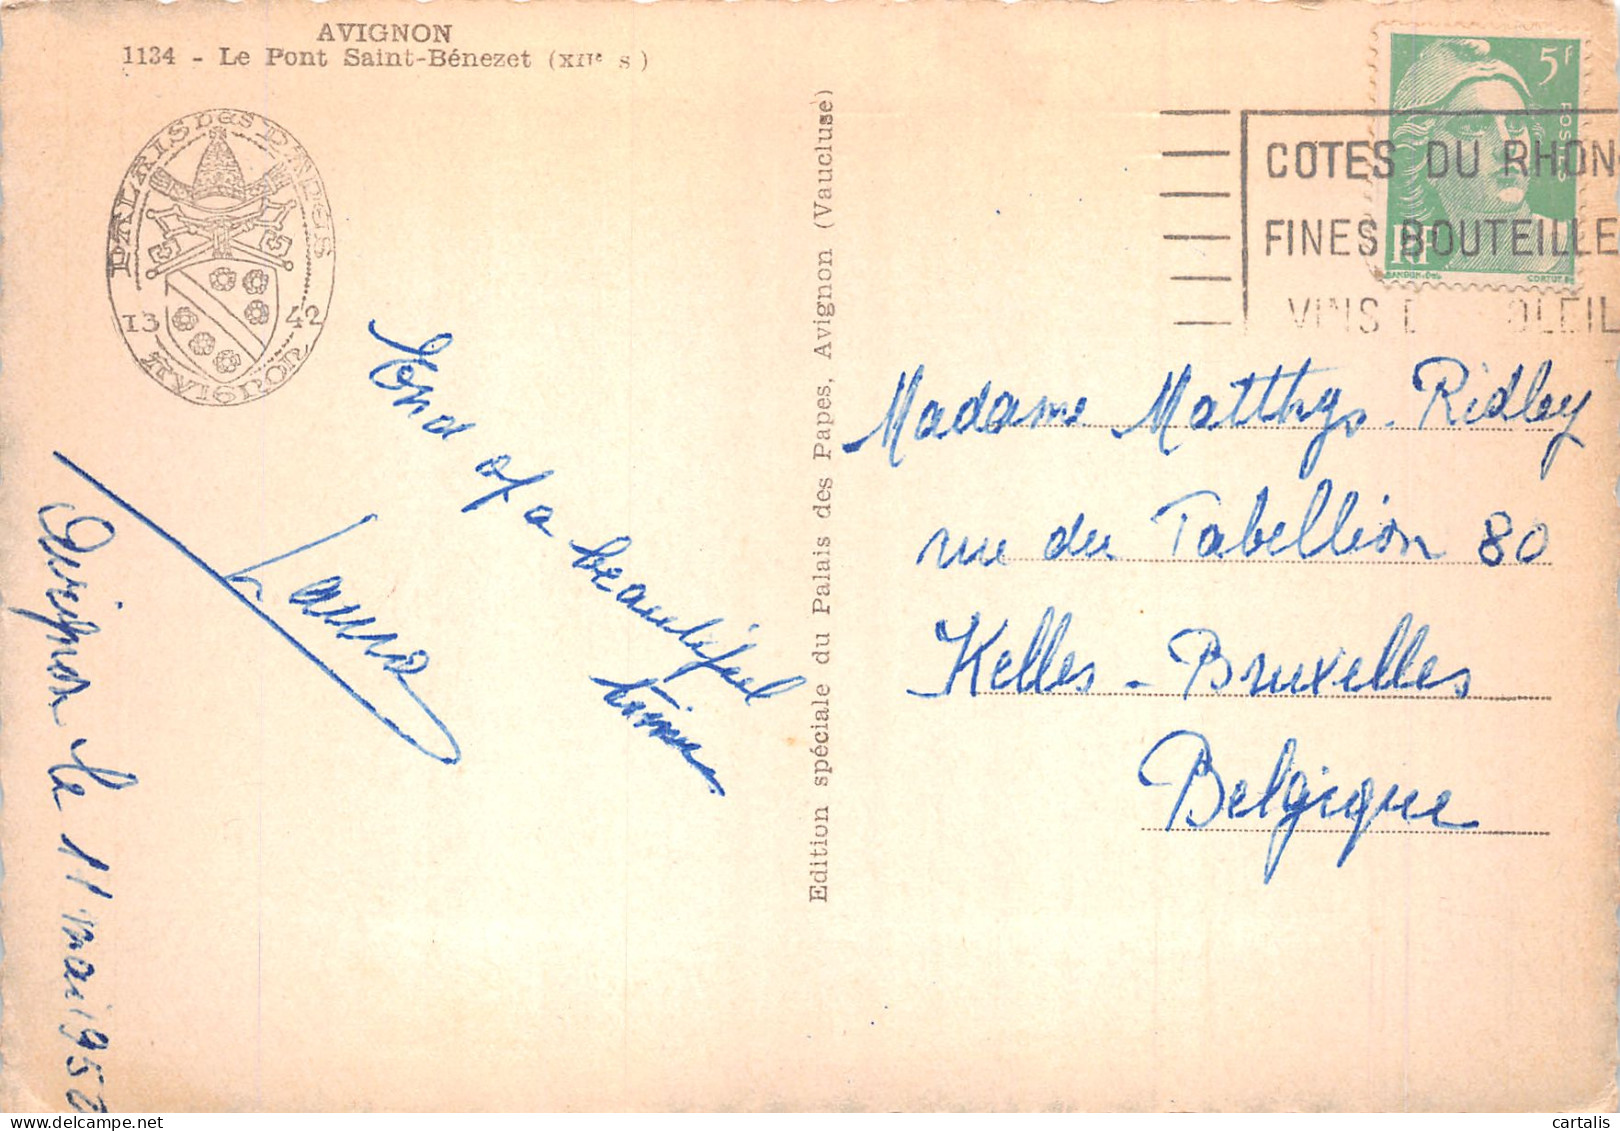 AVIGNON
1134 - Le Pont Saint-Bénezet (XIIe s)
PALAIS DES PAPES
13 42
AVIGNON
Edition spéciale du Palais des Papes, Avignon (Vaucluse)
5f
POSTES
RF
GANDON
CORTOT
COTES DU RHON
FINES BOUTEILLE
VINS D OLEIL
End
of a
beautiful
time
Laura
Avignon le 11 mai 195
Madame Matthys-Ridley
rue du Tabellion 80
Xelles-Bruxelles
Belgique
cartalis
delcampe.net